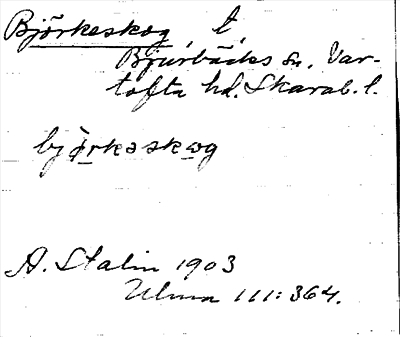 Björkeskog, t,
Bjurbäcks sn, Var-
tofta hd. Skarab. l.
björkəskog
A. Stalin 1903
Ulma 111:364.